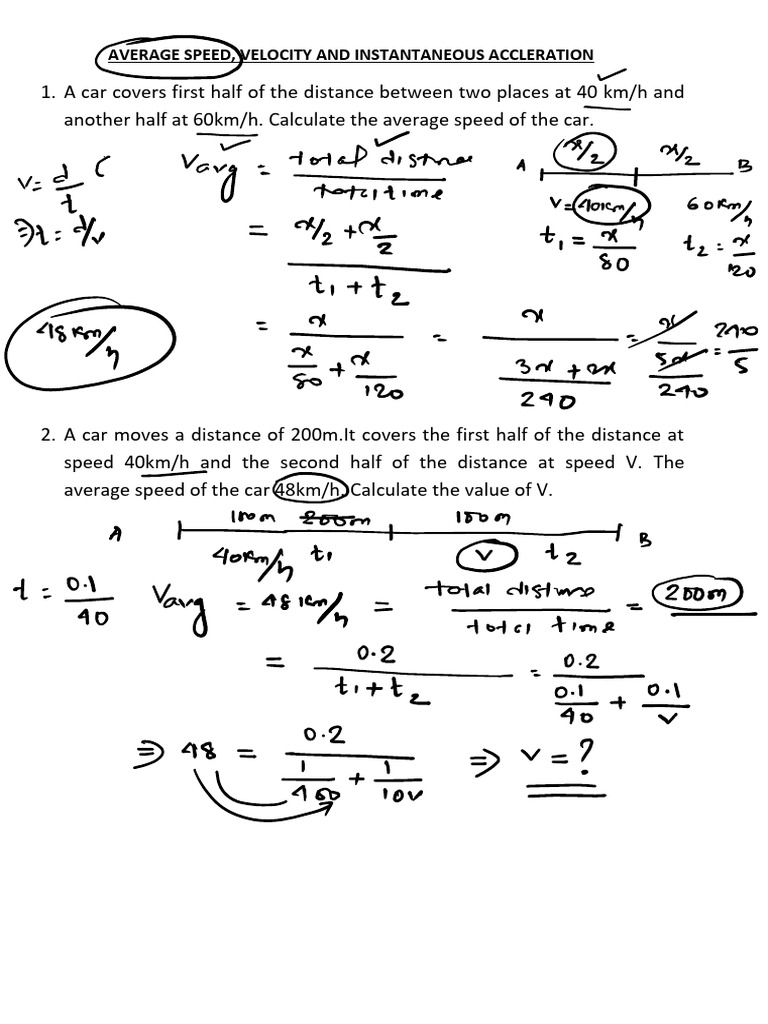 AVERAGE SPEED, VELOCITY AND INSTANTANEOUS ACCLERATION
1. A car covers first half of the distance between two places at 40 km/h and
another half at 60km/h. Calculate the average speed of the car.
V = d/t
⇒ t = d/v
Vavg = total distnce / total time
= (x/2 + x/2) / (t1 + t2)
= x / (x/80 + x/120) = x / ((3x + 2x)/240) = x / (5x/240) = 240/5
48 km/h
A x/2 x/2 B
V = 40km/h 60km/h
t1 = x/80 t2 = x/120
2. A car moves a distance of 200m.It covers the first half of the distance at
speed 40km/h and the second half of the distance at speed V. The
average speed of the car 48km/h. Calculate the value of V.
A 100m 200m 100m B
40km/h t1 V t2
t = 0.1/40
Vavg = 48km/h = total distnce / total time = 200m
= 0.2 / (t1 + t2) = 0.2 / (0.1/40 + 0.1/V)
⇒ 48 = 0.2 / (1/400 + 1/10V) ⇒ V = ?